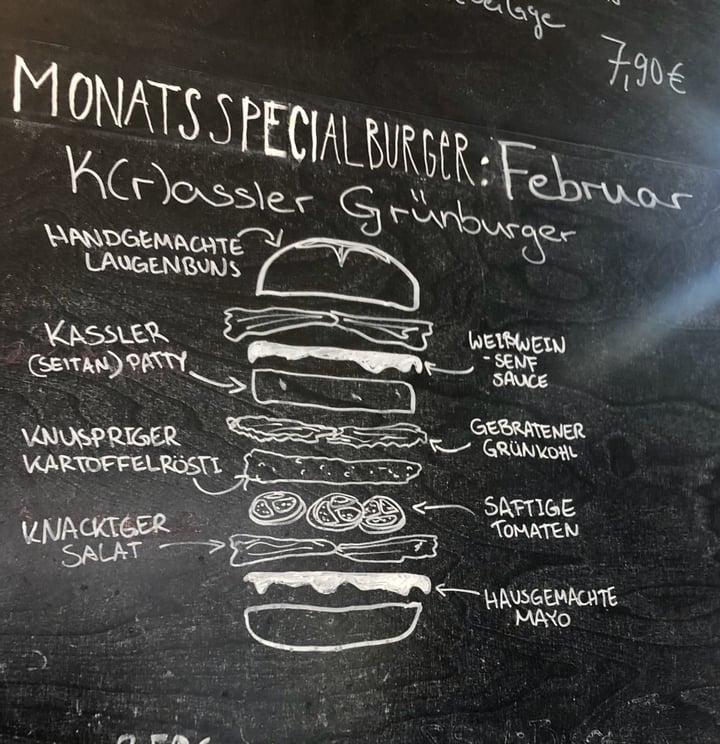 7,90€
MONATSSPECIALBURGER: Februar
K(r)assler Grünburger
HANDGEMACHTE
LAUGENBUNS
KASSLER
(SEITAN) PATTY
WEIßWEIN
-SENF
SAUCE
KNUSPRIGER
KARTOFFELRÖSTI
GEBRATENER
GRÜNKOHL
SAFTIGE
TOMATEN
KNACKIGER
SALAT
HAUSGEMACHTE
MAYO